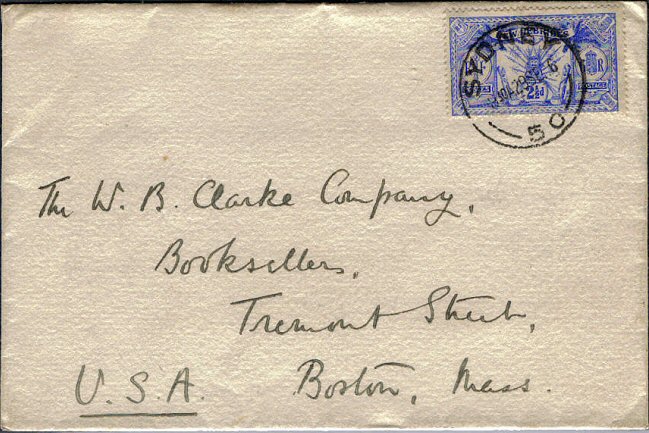 SYDNEY
2½d
POSTAGE
50
The W. B. Clarke Company,
Booksellers,
Tremont Street,
Boston, Mass.
U.S.A.